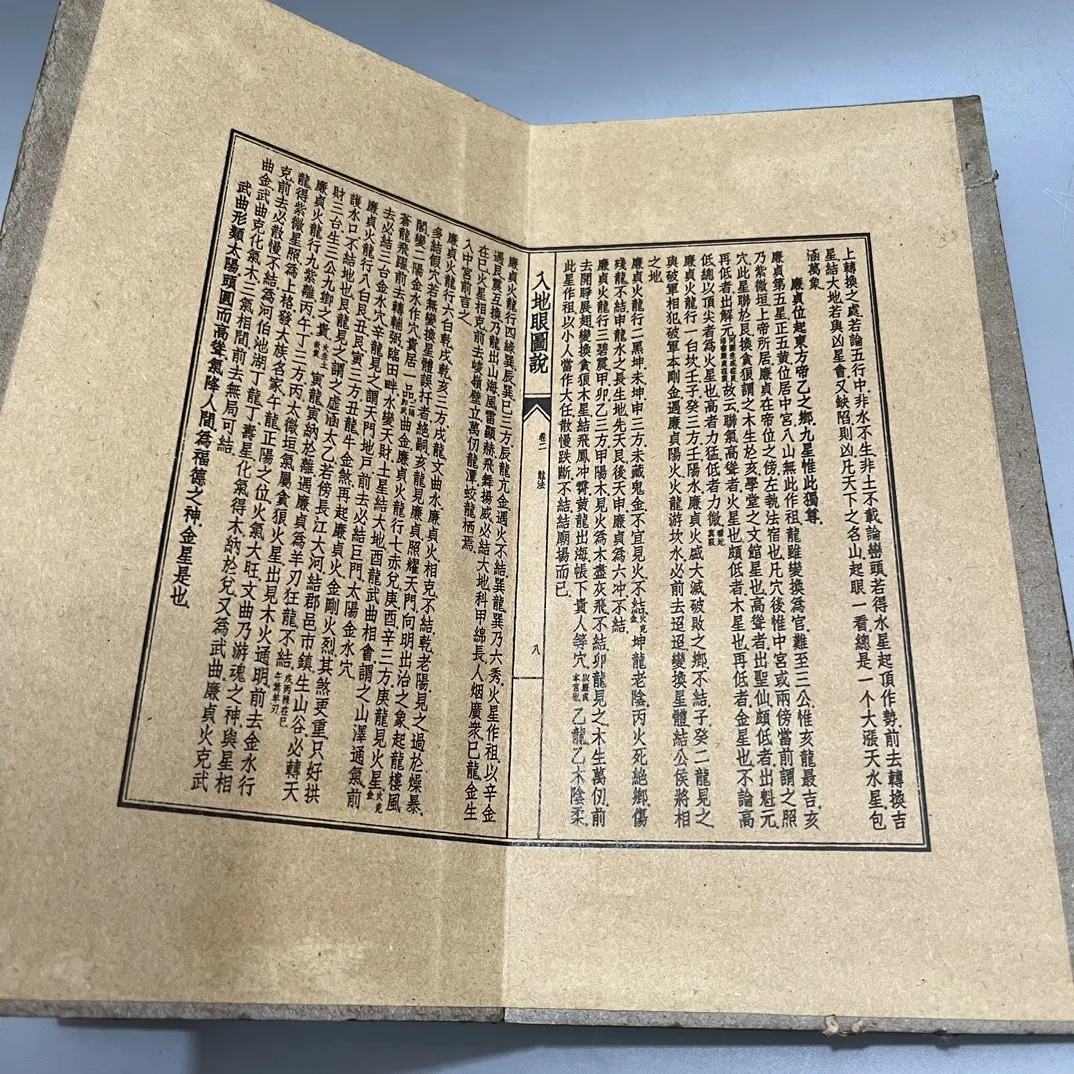 上轉換之處若論五行中非水不生非土不載論巒頭若得水星起頂作勢前去轉換吉
星結大地若與凶星會又缺陷則凶凡天下之名山起眼一看總是一个大漲天水星包
涵萬象
廉貞位起東方帝乙之鄉九星惟此獨尊
廉貞第五星正五黃位居中宮八山無此作祖龍雖變換爲官難至三公惟亥龍最吉亥
乃紫微垣上帝所居廉貞在帝位之傍左執法宿也凡穴後惟中宮或兩傍當前謂之照
穴此星聯於艮換貪狼謂之木生於亥學堂之文館星也高聳者出聖仙頗低者出魁元
再低者出解元故云聯氣高聳者火星也頗低者木星也再低者金星也不論高
低總以頂尖者爲火星也高者力猛低者力微
廉貞火龍行一白坎壬子癸三方壬陽水廉貞火威大滅破敗之鄉不結子癸二龍見之
與破軍相犯破軍本剛金遇廉貞陽火火龍游坎水必前去迢迢變換星體結公侯將相
之地
廉貞火龍行二黑坤未坤申三方未藏鬼金不宜見火不結坤龍老陰丙火死絕鄉傷
殘龍不結申龍水之長生地先天艮後天申廉貞爲六冲不結
廉貞火龍行三碧震甲卯乙三方甲陽木見火爲木盡灰飛不結卯龍見之木生萬仞前
去開睜展翅變換貪狼木星結飛鳳冲霄黃龍出海帳下貴人等穴乙龍乙木陰柔
此星作祖以小人當作大任散慢跌斷不結結廟場而已
入地眼圖說
卷二 龍法
八
廉貞火龍行四綠巽辰巽巳三方辰龍亢金遇火不結巽龍巽乃六秀火星作祖以辛金
遇艮震互換乃龍出山海風雷顯赫飛舞揚威必結大地科甲綿長人烟廣衆巳龍金生
在巳火星相克前去峻嶺壁立萬仞龍潭蛟龍栖焉
入中宮前言之
廉貞火龍行六白乾戌乾亥三方戌龍文曲水廉貞火相克不結乾老陽見之過於燥暴
多結假穴若無變換星體誤扦者絕嗣亥龍見廉貞照耀天門向明出治之象起龍樓鳳
閣變二陽金水作穴貴居一品曲金廉貞火龍行七赤兌庚酉辛三方庚龍見火星
蒼龍飛躍前去轉輔弼臨田畔水變天財土星結大地酉龍武曲相會謂之山澤通氣前
去必結三台金水穴辛龍見之謂天門地戶前去必結巨門太陽金水穴
廉貞火龍行八白艮丑艮寅三方丑龍牛金煞再起廉貞火金剛火烈其煞更重只好拱
護水口不結地也艮龍見之謂之虛涵太乙若傍長江大河結郡邑市鎮生山谷必轉天
財三台生三公九卿之貴寅龍寅納於離遇廉貞爲羊刃狂龍不結
廉貞火龍行九紫離丙午丁三方丙太微垣氣屬貪狼火星出見木火通明前去金水行
龍得紫微星照爲上格發大族名家午龍正陽之位火氣大旺文曲乃游魂之神與星相
克前去必散慢不結爲河伯池湖丁龍丁壽星化氣得木納於兌又爲武曲廉貞火克武
曲金武曲克化氣木三氣相間前去無局可結
武曲形類太陽頭圓而高聳氣降人間爲福德之神金星是也